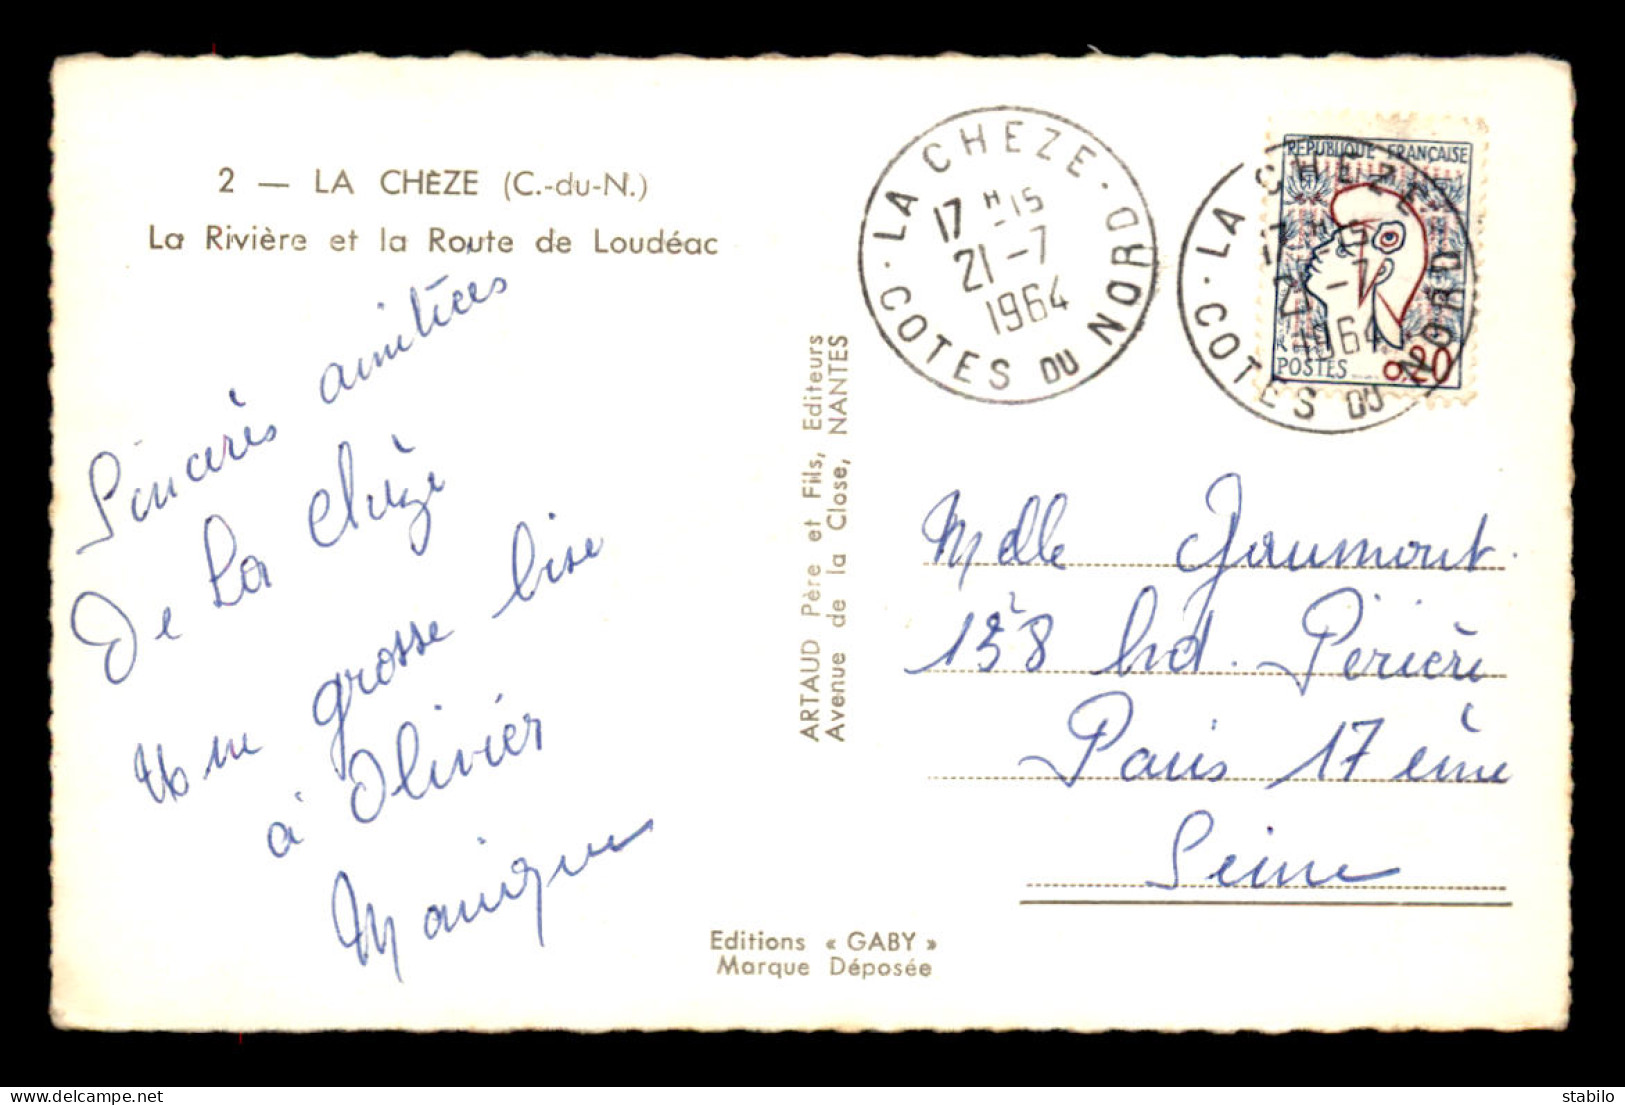 2 — LA CHÈZE (C.-du-N.)
La Rivière et la Route de Loudéac
Sincères amitiées
De La Chèze
Une grosse bise
à Olivier
Monique
ARTAUD Père et Fils, Editeurs
Avenue de la Close, NANTES
Editions « GABY »
Marque Déposée
LA CHEZE · COTES DU NORD ·
17 H 15
21 - 7
1964
LA CHEZE · COTES DU NORD
17 H 15
21 - 7
1964
REPUBLIQUE FRANÇAISE
POSTES 0,20
Mdlle Gaumont.
158 bd. Périère
Paris 17 ème
Seine
delcampe.net
the_collector